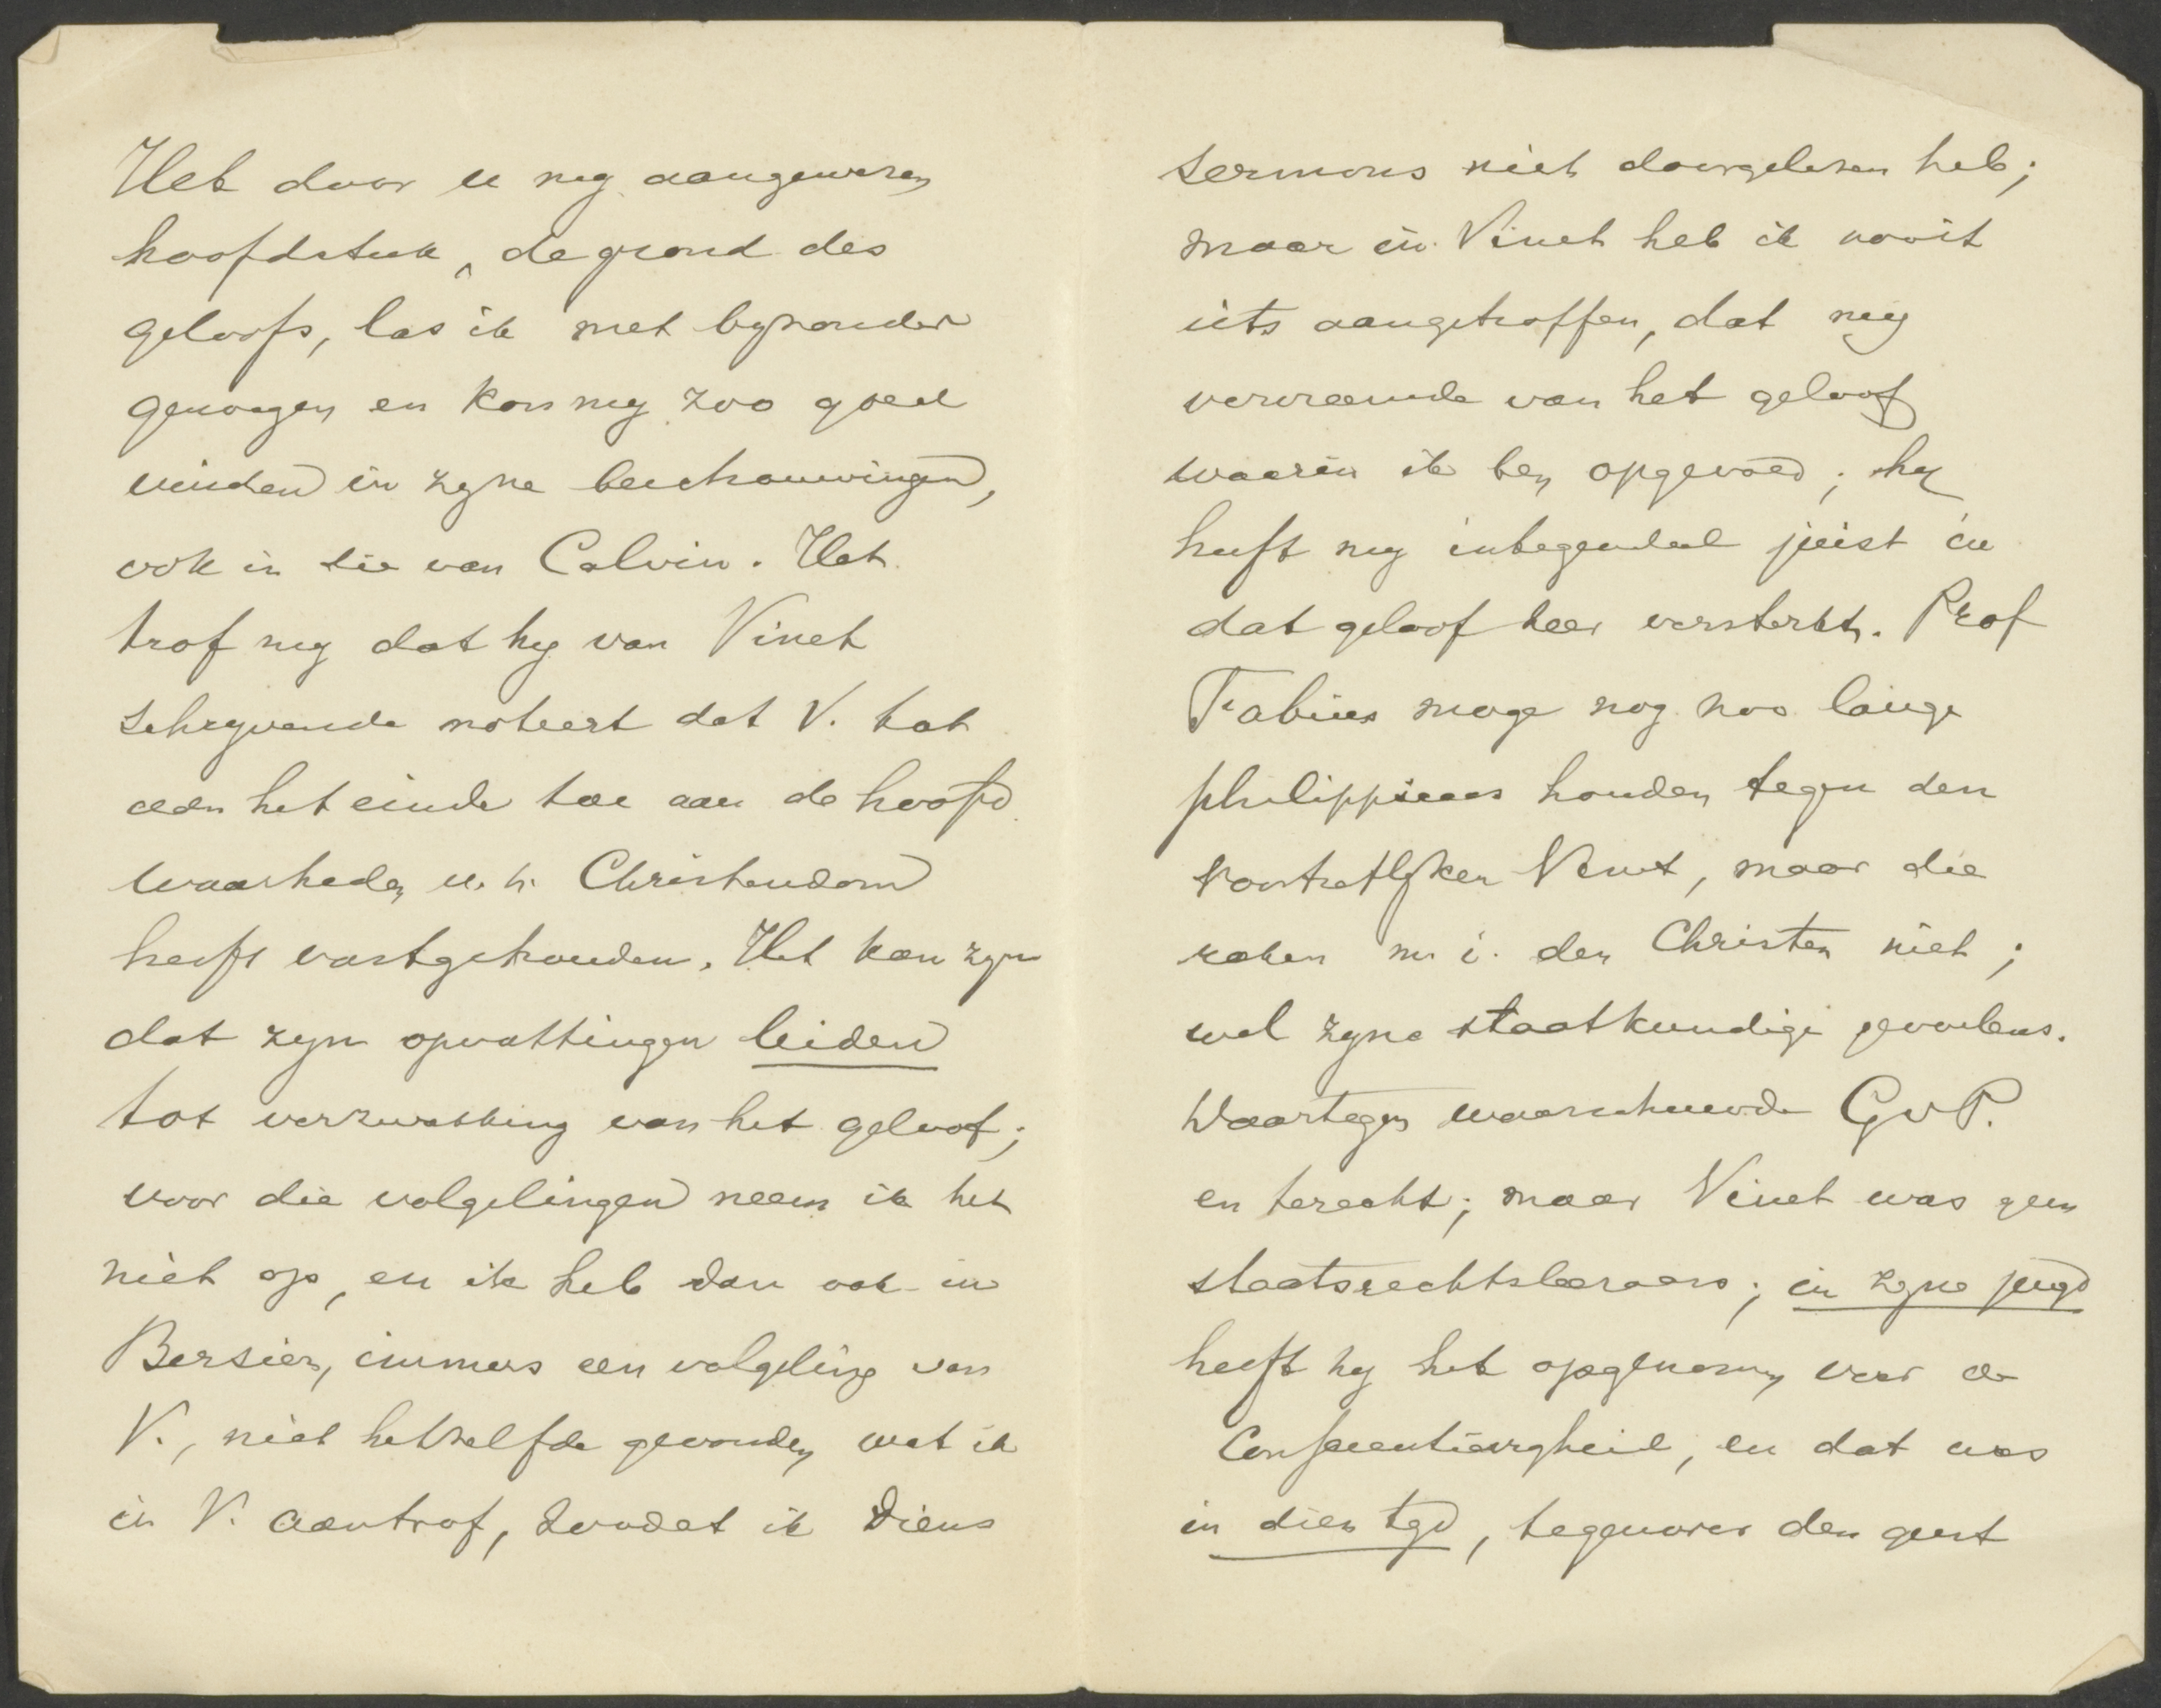 Het door u mij aangewezen
hoofdstuk, de grond des
geloofs, las ik met byzonder
genoegen en kon my zoo goed
vinden in zyne beschouwingen,
ook in die van Calvin. Het
trof my dat hy van Vinet
schryvende noteert dat V. tot
aan het einde toe aan de hoofd
waarheden v. h. Christendom
heeft vastgehouden. Het kan zyn
dat zyn opvattingen leiden
tot verzwakking van het geloof;
voor die volgelingen neem ik het
niet op, en ik heb dan ook in
Bersier, immers een volgeling van
V., niet hetzelfde gevonden wat ik
in V. aantrof, zoodat ik diens
sermons niet doorgelezen heb;
maar in Vinet heb ik nooit
iets aangetroffen, dat my
vervreemde van het geloof
waarin ik ben opgevoed; hy
heeft my integendeel juist in
dat geloof zeer versterkt. Prof
Fabius moge nog zoo lange
philippicas houden tegen den
voortreflyken Vinet, maar die
raken m. i. den Christen niet;
wel zyne staatkundige gevoelens.
Daartegen waarschuwde GvP.
en terecht; maar Vinet was geen
staatsrechtsleeraar; in zyne jeugd
heeft hy het opgenomen voor de
Conscientievryheid, en dat was
in dien tyd, tegenover den geest